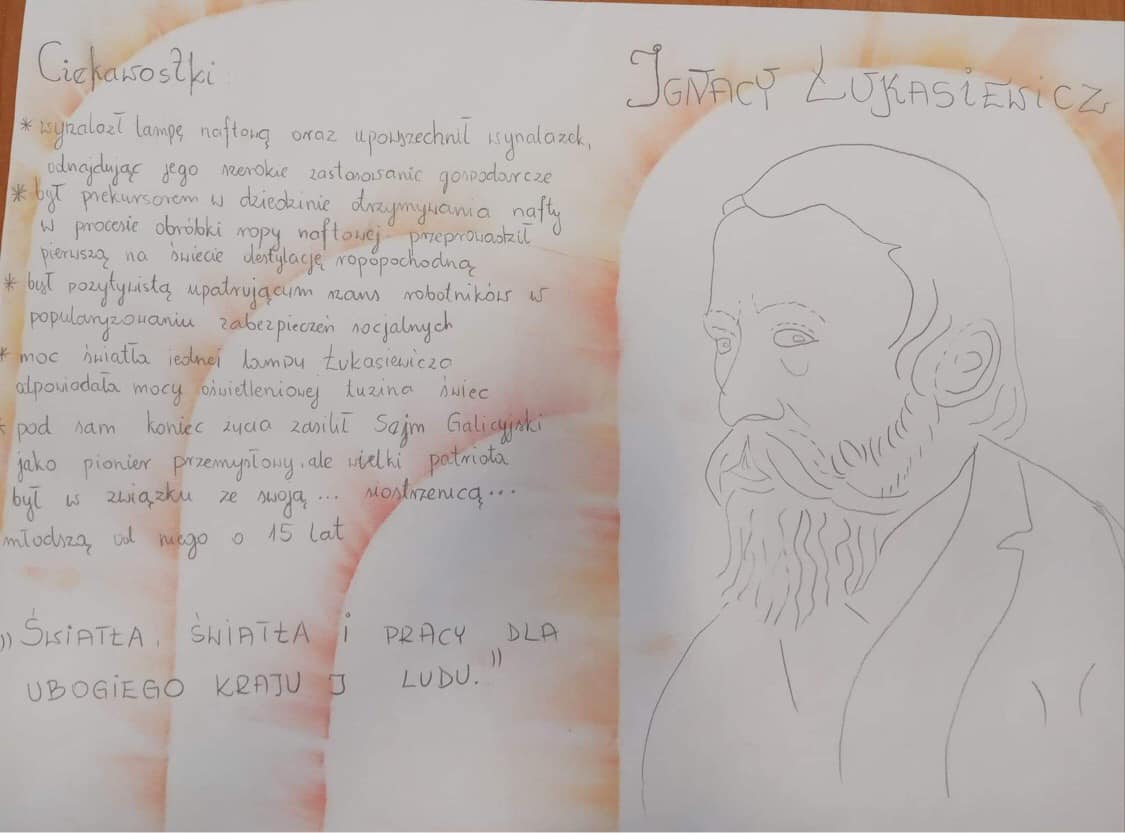 Ciekawostki
* wynalazł lampę naftową oraz upowszechnił wynalazek,
odnajdując jego szerokie zastosowanie gospodarcze
* był prekursorem w dziedzinie otrzymywania nafty
w procesie obróbki ropy naftowej przeprowadził
pierwszą na świecie destylację ropopochodną
* był pozytywistą upatrującym szans robotników w
popularyzowaniu zabezpieczeń socjalnych
* moc światła jednej lampy Łukasiewicza
odpowiadała mocy oświetleniowej tuzina świec
* pod sam koniec życia zasilił Sejm Galicyjski
jako pionier przemysłowy, ale wielki patriota
był w związku ze swoją ... siostrzenicą...
młodszą od niego o 15 lat
"ŚWIATŁA, ŚWIATŁA i PRACY DLA
UBOGIEGO KRAJU I LUDU."
IGNACY ŁUKASIEWICZ